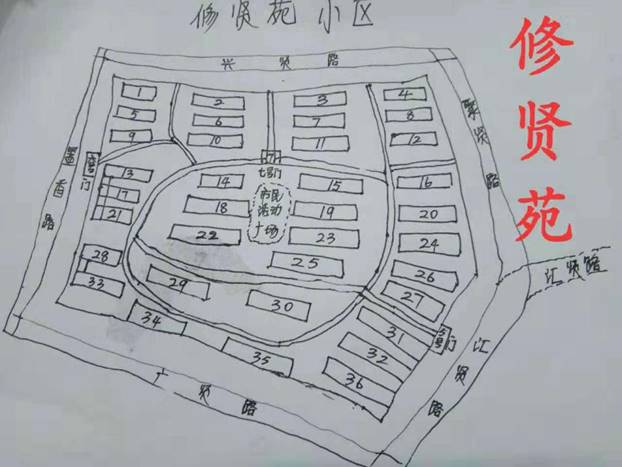 修贤苑小区
修贤苑
兴贤路
聚贤路
1
2
3
4
5
6
7
8
9
10
11
12
门
七号门
13
14
15
16
17
18
19
20
21
22
23
24
市民
活动
广场
25
26
27
28
29
30
31
32
33
34
35
36
香路
门
汇贤路
汇贤路
广贤路